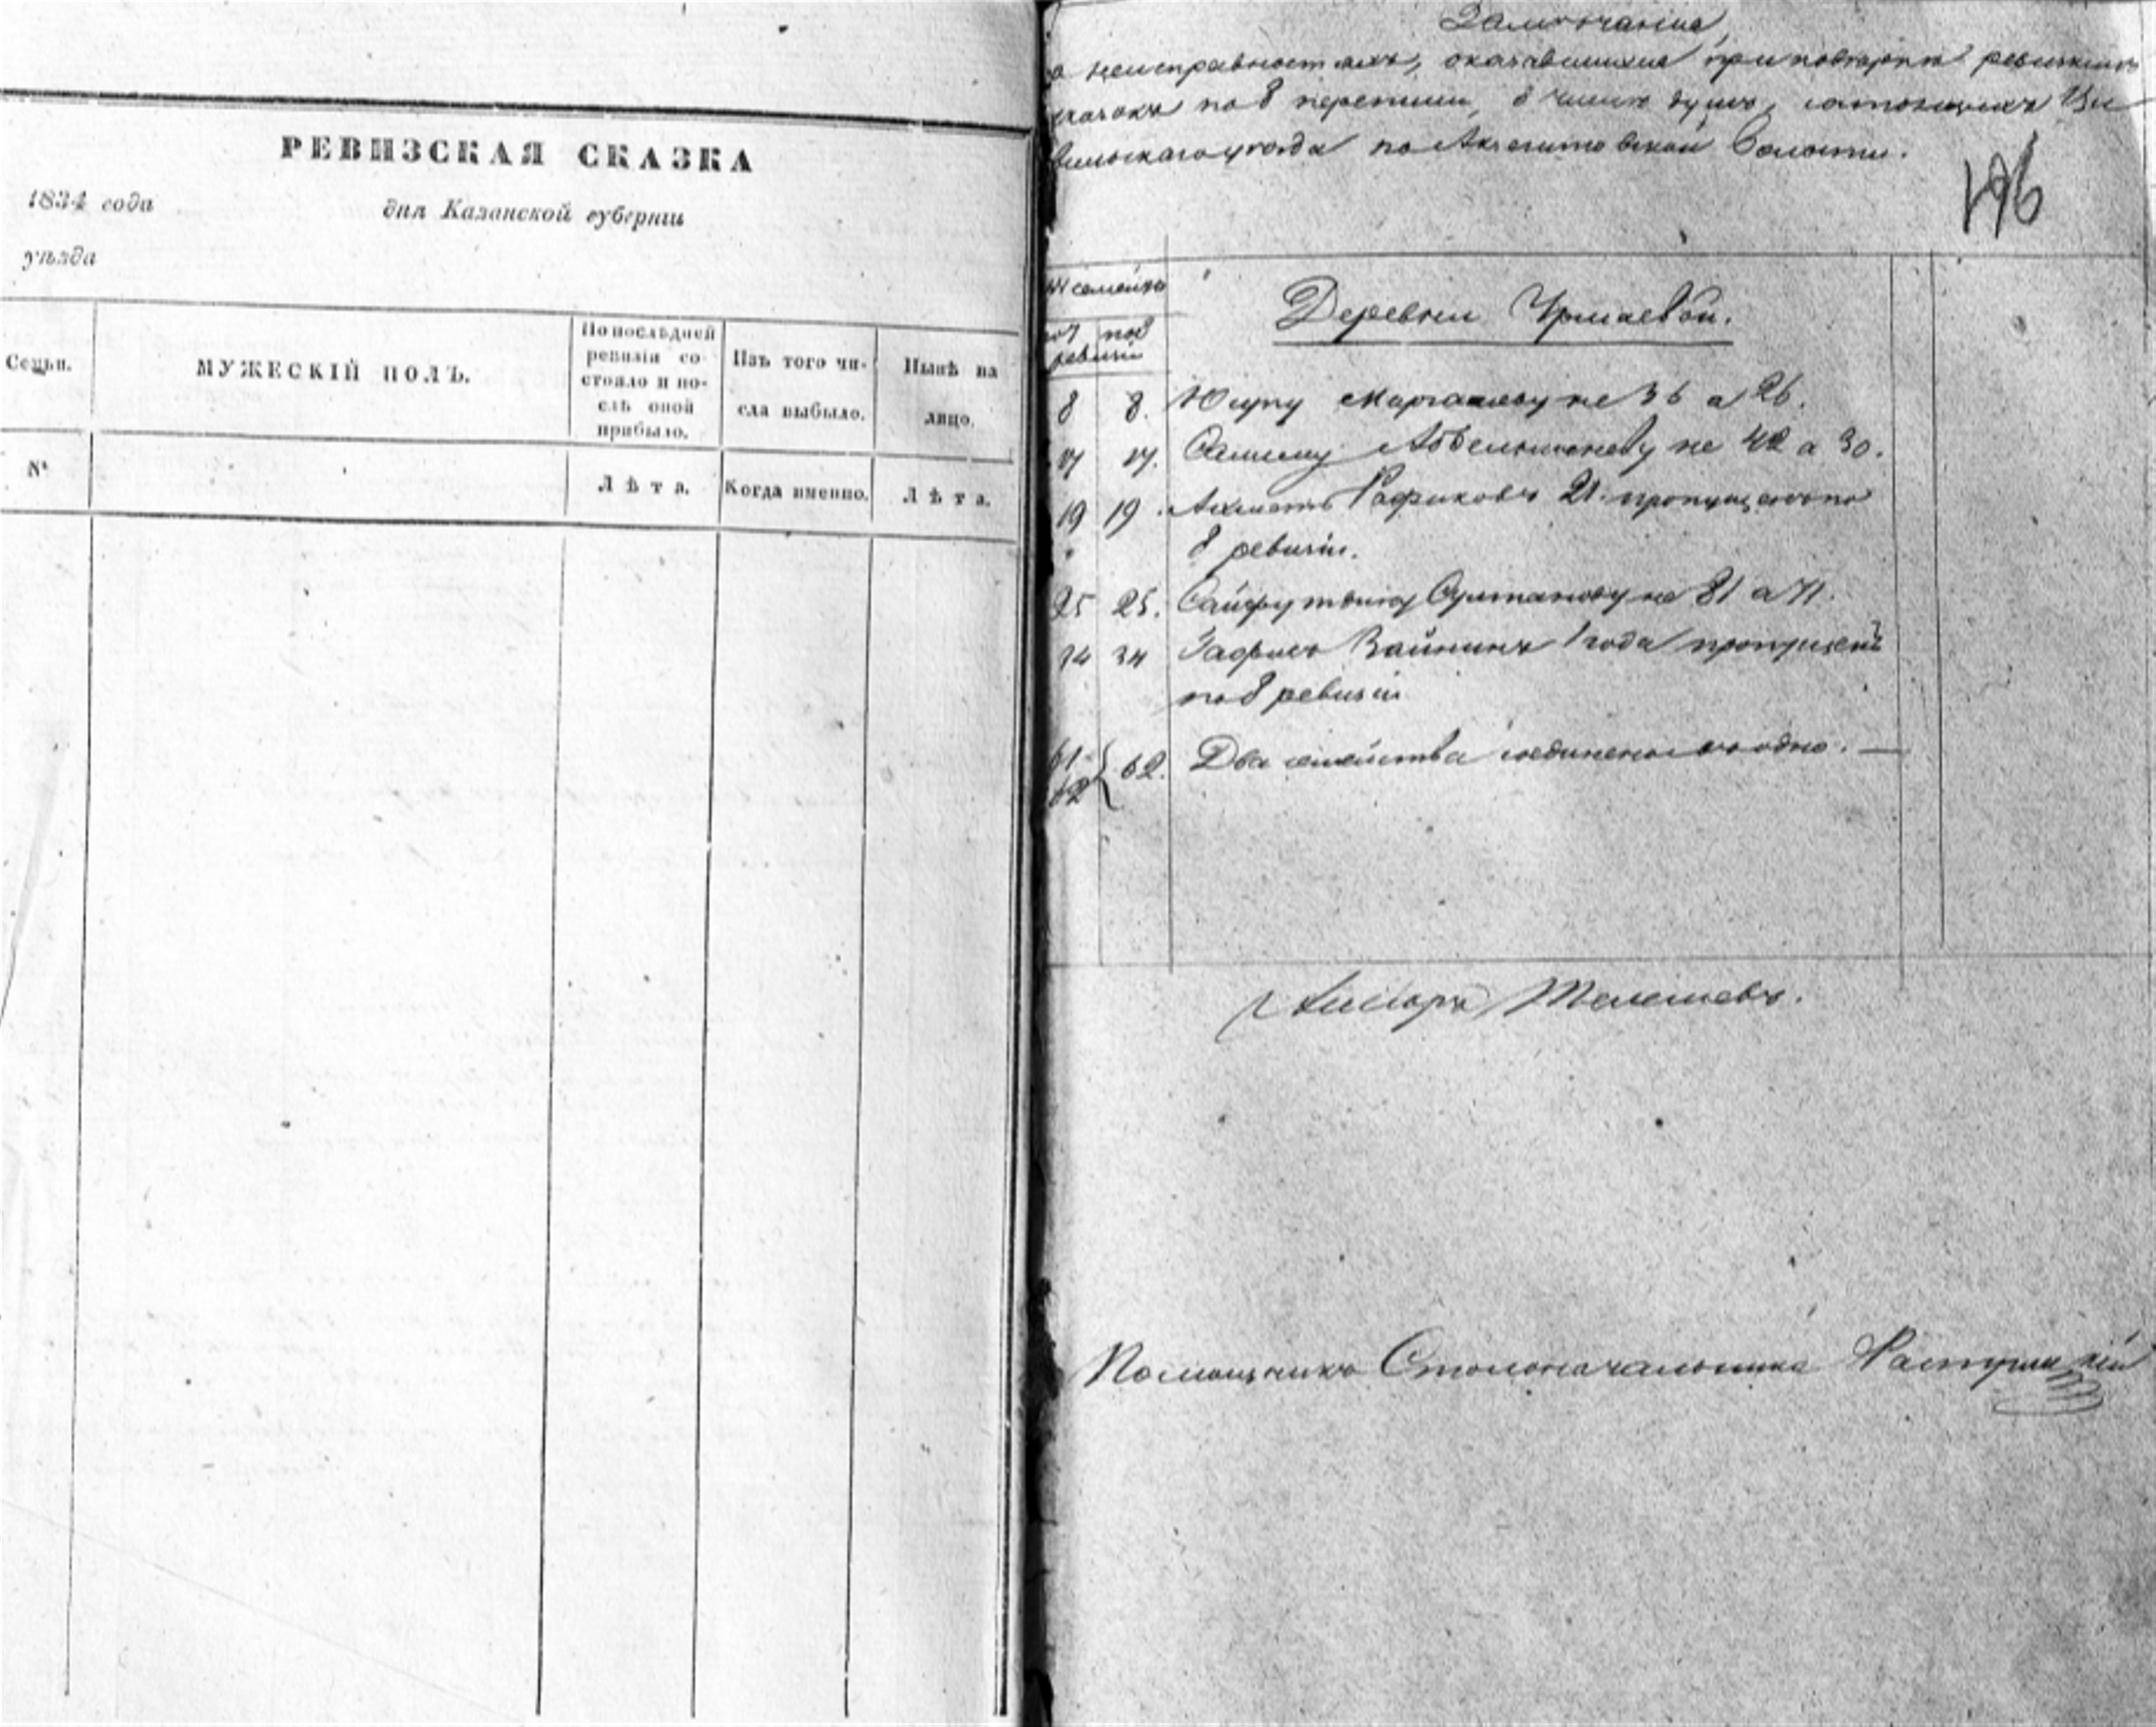 РЕВИЗСКАЯ СКАЗКА
1834 года
дня Казанской губернiи
уѣзда
Семьи.
МУЖЕСКIЙ ПОЛЪ.
По послѣдней
ревизiи со-
стояло и по-
слѣ оной
прибыло.
Изъ того чи-
сла выбыло.
Нынѣ на
лицо.
№
Лѣта.
Когда именно.
Лѣта.
Замѣчанiе
о неисправностяхъ, оказавшихся при повѣркѣ ревизкихъ
сказокъ по 8 переписи, о числѣ душъ, состоящихъ Ци
вильскаго уѣзда по волости.
196
№ семействъ
по 7 по 8
ревизiи
Деревни Урмаевой.
8 8. Юсупу не 36 а 26.
17 17. не 42 а 30.
19 19. Ахметъ Рафиковъ 21. пропущенъ по
8 ревизiи.
25 25. Султанову не 81 а 71.
34 34 1 года пропущенъ
по 8 ревизiи
61
62 62. Два семейства соединены въ одно. —
Помощникъ Столоначальника